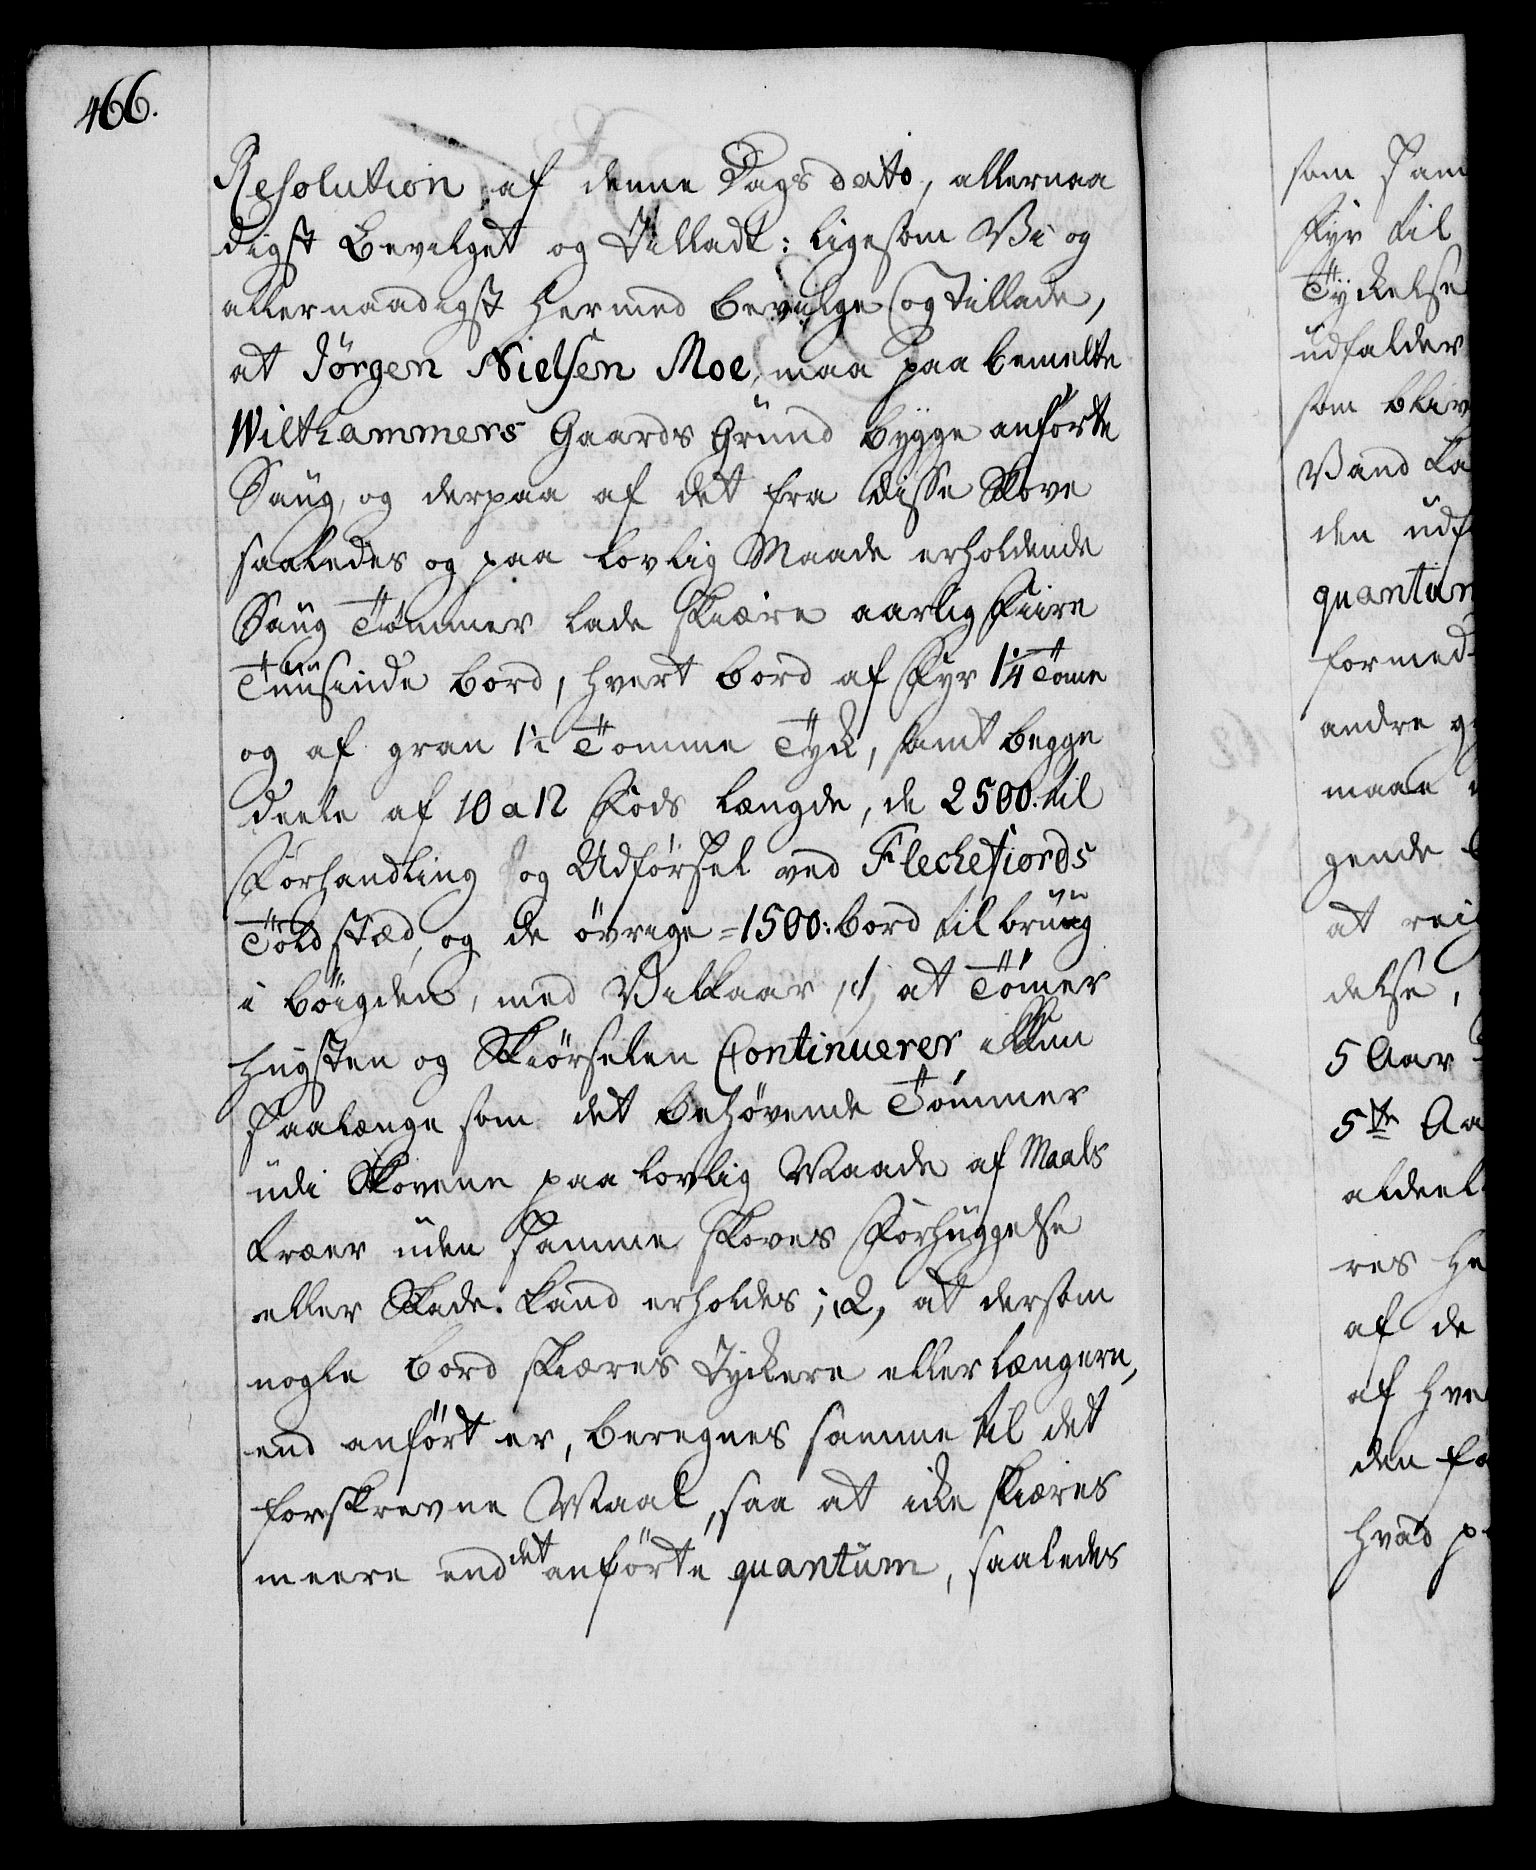 466.
Resolution af denne Dags dato, allernaa
digst bevilget og Tilladt: ligesom Vi og
allernaadigst hermed bevilge og Tillade,
at Jörgen Nielsen Moe, maa paa bemelte
Wilthammers Gaards Grund bygge anförte
Saug, og derpaa af det fra disse Skove
saaledes og paa lovlig Maade erholdende
Saug Tömmer lade skiære aarlig Fiire
Tuusinde bord, hvert bord af Fyr 1¼ Tome
og af gran 1½ Tomme Tyck, samt begge
deele af 10 a 12 Fods længde, de 2500. til
Forhandling og Udförsel ved Flechefiords
Told stæd, og de övrige = 1500: bord til bruug
i böigden, med Vilkaar, 1, at Tömer
hugsten og Kiörselen Continuerer ikkun
saalænge som det behövende Tömmer
udi Skovene paa lovlig Maade af Maals
træer uden samme skoves Forhuggelse
eller Skade kand erholdes; 2, at dersom
nogle bord skiæres Tyckere eller længere,
end anfört er, beregnes samme til det
forskrevne Maal, saa at icke skiæres
meere end det anförte quantum, saaledes
som sam
Fyr til
Tyckelse
udfalder
som bliv
Vand
den udf
quantum
formed
andre
maae
gende
at
delse,
5 Aar
5te Aa
aldeel
res
af de
af hve
den
hvad